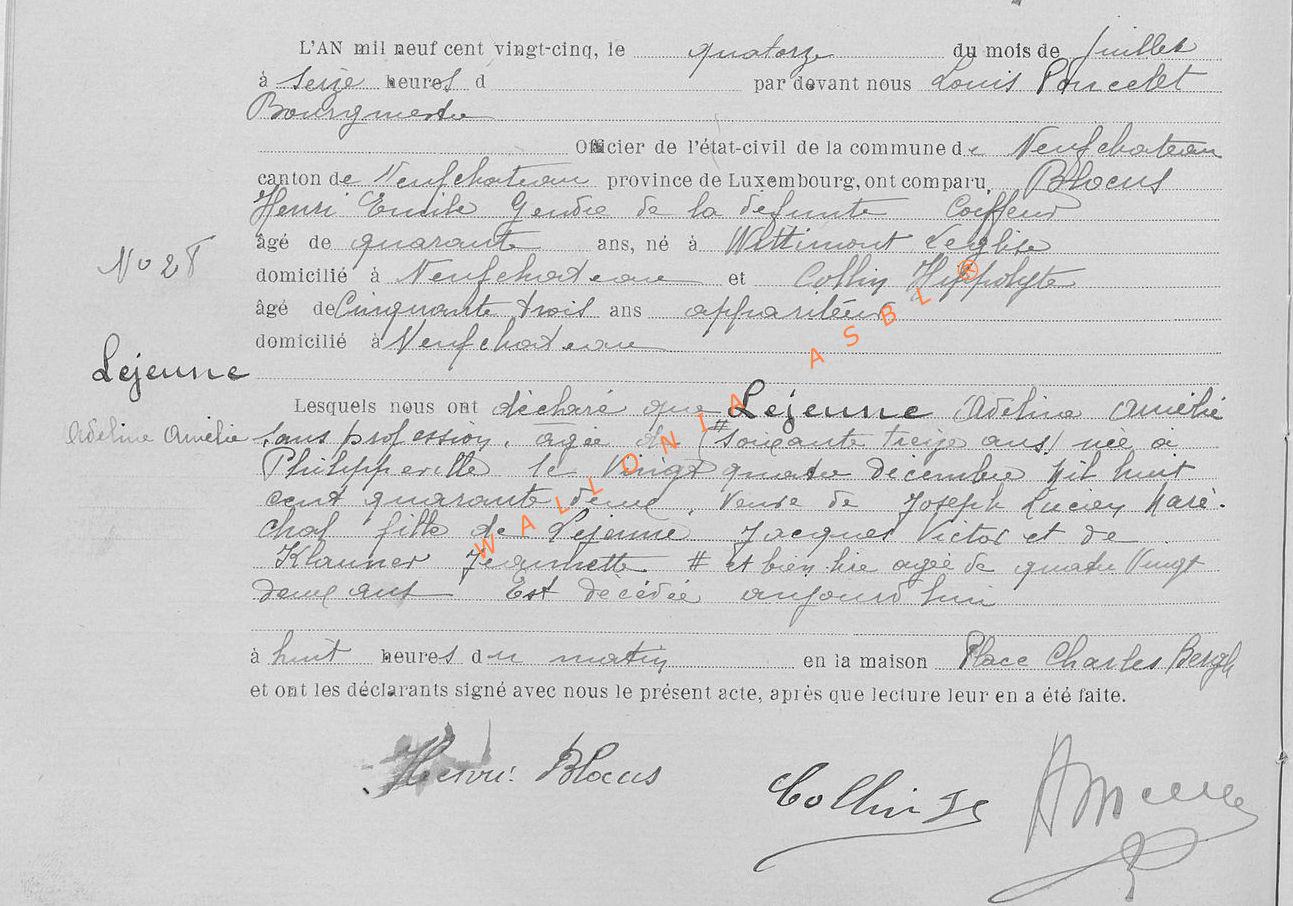 L'AN mil neuf cent vingt-cinq, le quatorze du mois de Juillet
à seize heures d par devant nous Louis Poncelet
Bourgmestre
Officier de l'état-civil de la commune de Neufchateau
canton de Neufchateau province de Luxembourg, ont comparu, Blocus
Henri Emile Gendre de la défunte Coiffeur
âgé de quarante ans, né à Wittimont Leglise
No 28
domicilié à Neufchateau et Collin Hippolyte
âgé de Cinquante trois ans appariteur
domicilié à Neufchateau
Lejeune
Lesquels nous ont déclaré que Lejeune Adeline Amélie
Adeline Amélie
sans profession, agée de # (soixante treize ans) née à
Philippeville le Vingt quatre décembre Mil huit
cent quarante deux, Veuve de Joseph Lucien Maré-
chal fille de Lejeune Jacques Victor et de
Klauner Jeannette # et bien lire agée de quatre Vingt
deux ans Est décédée aujourd'hui
à huit heures du matin en la maison Place Charles Bergh
et ont les déclarants signé avec nous le présent acte, après que lecture leur en a été faite.
WALLONIA ASBL ®
Henri Blocus
Collin